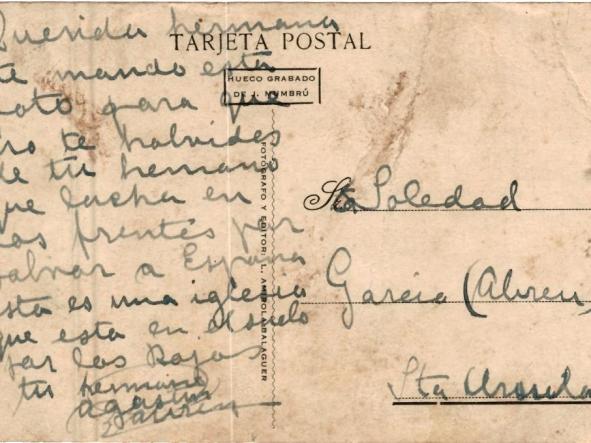 Querida hermana
te mando esta
foto para que
no te holvides
de tu hermano
que lucha en
los frentes por
salvar a España
esta es una iglesia
que esta en el suelo
por los Rojos
tu hermano
Agustin
TARJETA POSTAL
HUECO GRABADO
DE J. NUMBRÚ
FOTÓGRAFO Y EDITOR: L. BALAGUER
Sta Soledad
Garcia
Sta Ursula